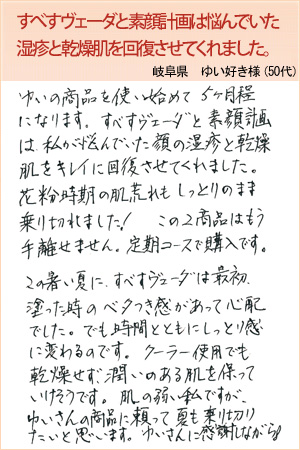 すべすヴェーダと素顔計画は悩んでいた
湿疹と乾燥肌を回復させてくれました。
岐阜県　ゆい好き様（50代）
ゆいの商品を使い始めて 5ヶ月程
になります。すべすヴェーダと素顔計画
は、私が悩んでいた顔の湿疹と乾燥
肌をキレイに回復させてくれました。
花粉時期の肌荒れも しっとりのまま
乗り切れました！　この2商品はもう
手離せません。定期コースで購入です。
この暑い夏に、すべすヴェーダは最初、
塗った時の ベタつき感があって心配
でした。でも時間とともにしっとり感
に変わるのです。クーラー使用でも
乾燥せず、潤いのある肌を保って
いけそうです。肌の弱い私ですが、
ゆいさんの商品に頼って夏も乗り切り
たいと思います。ゆいさんに感謝しながら